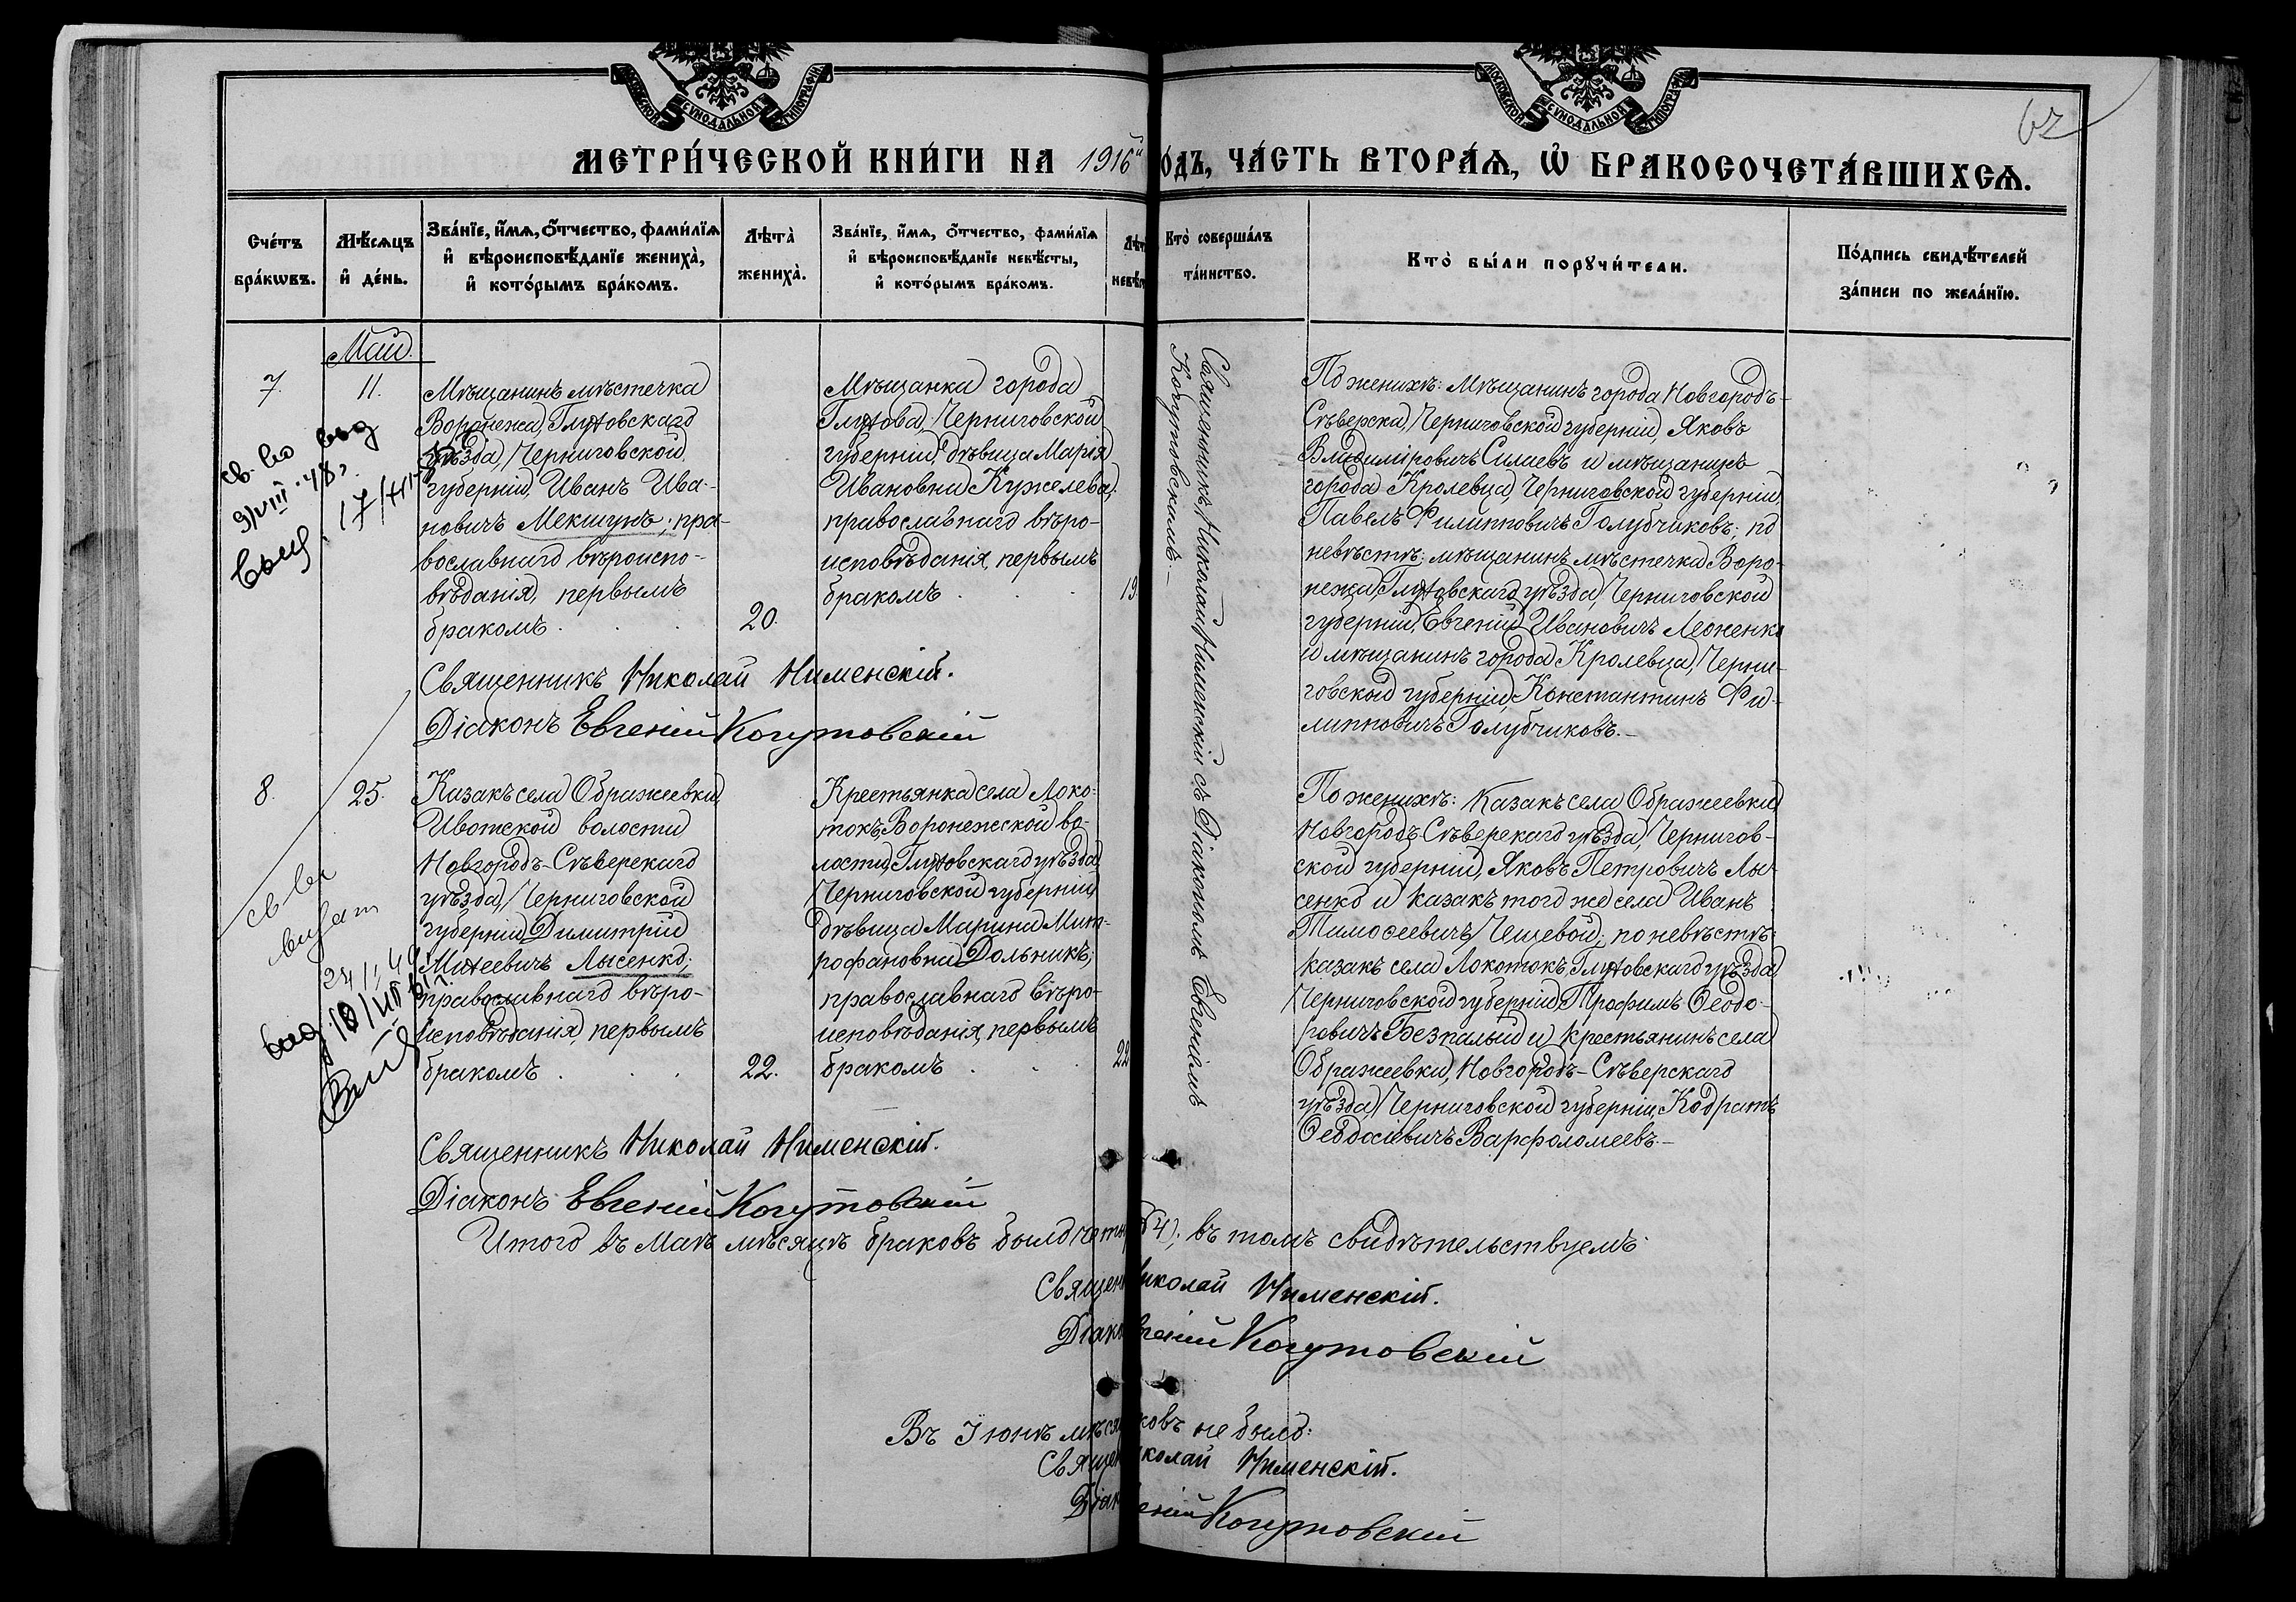 МОСКОВСКОЙ СѴНОДАЛЬНОЙ ТИПОГРАФІИ
МОСКОВСКОЙ СѴНОДАЛЬНОЙ ТИПОГРАФІИ
62
МЕТРИ́ЧЕСКОЙ КНИ́ГИ НА 1916й
ОДЪ, ЧА́СТЬ ВТОРА́Ѧ, Ѡ҆ БРАКОСОЧЕТА́ВШИХСѦ.
Сче́тъ
бра́кѡвъ.
Мѣ́сѧцъ
и҆ де́нь.
Зва́нїе, и҆́мѧ, ѻ҆́тчество, фами́лїѧ
и҆ вѣроисповѣ́данїе жениха̀,
и҆ кото́рымъ бра́комъ.
Лѣта̀
жениха̀.
Зва́нїе, и҆́мѧ, ѻ҆́тчество, фами́лїѧ
и҆ вѣроисповѣ́данїе невѣ́сты,
и҆ кото́рымъ бра́комъ.
Лѣт
невѣ
Кто̀ соверша́лъ
та́инство.
Кто̀ бы́ли порꙋчи́тели.
По́дпись свидѣ́телей
за́писи по жела́нїю.
Май.
7.
11.
Мѣщанинъ мѣстечка
Воронежа, Глуховскаго
уѣзда, Черниговской
губерніи, Иванъ Ива-
новичъ Мекшунъ; пра-
вославнаго вѣроиспо-
вѣданія, первымъ
бракомъ . . .
20.
Мѣщанка города
Глухова, Черниговской
губерніи, дѣвица Марія
Ивановна Кужелева;
православнаго вѣро-
исповѣданія, первымъ
бракомъ . . .
19.
Священникъ Николай Нименскій съ Діакономъ Евгеніемъ
Когутовскимъ.–
По женихѣ: мѣщанинъ города Новгородъ-
Сѣверска, Черниговской губерніи, Яковъ
Владиміровичъ Силаевъ и мѣщанинъ
города Кролевца, Черниговской губерніи
Павелъ Филипповичъ Голубчиковъ; по
невѣстѣ: мѣщанинъ мѣстечка Воро-
нежа, Глуховскаго уѣзда, Черниговской
губерніи, Евгеній Ивановичъ Леоненко
и мѣщанинъ города Кролевца, Черни-
говской губерніи, Константинъ Фи-
липповичъ Голубчиковъ.–
Священникъ Николай Нименскій.
Діаконъ Евгеній Когутовскій
8.
25.
Казакъ села Ображеевки,
Ивотской волости
Новгородъ-Сѣверскаго
уѣзда, Черниговской
губерніи Димитрій
Михеевичъ Лысенко;
православнаго вѣро-
исповѣданія, первымъ
бракомъ . . .
22.
Крестьянка села Локо-
токъ, Воронежской во-
лости, Глуховскаго уѣзда,
Черниговской губерніи,
дѣвица Марина Мит-
рофановна Дольникъ;
православнаго вѣро-
исповѣданія, первымъ
бракомъ . . .
22
По женихѣ: казакъ села Ображеевки
Новгородъ-Сѣверскаго уѣзда, Чернигов-
ской губерніи, Яковъ Петровичъ Лы-
сенко и казакъ того же села Иванъ
Тимофеевичъ Чещевой; по невѣстѣ:
казакъ села Локотокъ, Глуховскаго уѣзда,
Черниговской губерніи, Трофимъ Ѳеодо-
ровичъ Безпалый и крестьянинъ села
Ображеевки, Новгородъ-Сѣверскаго
уѣзда, Черниговской губерніи, Кодратъ
Ѳеодосіевичъ Варфоломеевъ.–
Священникъ Николай Нименскій.
Діаконъ Евгеній Когутовскій
Итого въ Маѣ мѣсяцѣ браковъ было четыр (4); въ томъ свидѣтельствуемъ:
Священ иколай Нименскій.
Діако вгеній Когутовскій
Въ Іюнѣ мѣся ковъ не было:
Священ колай Нименскій.
Діак еній Когутовскій